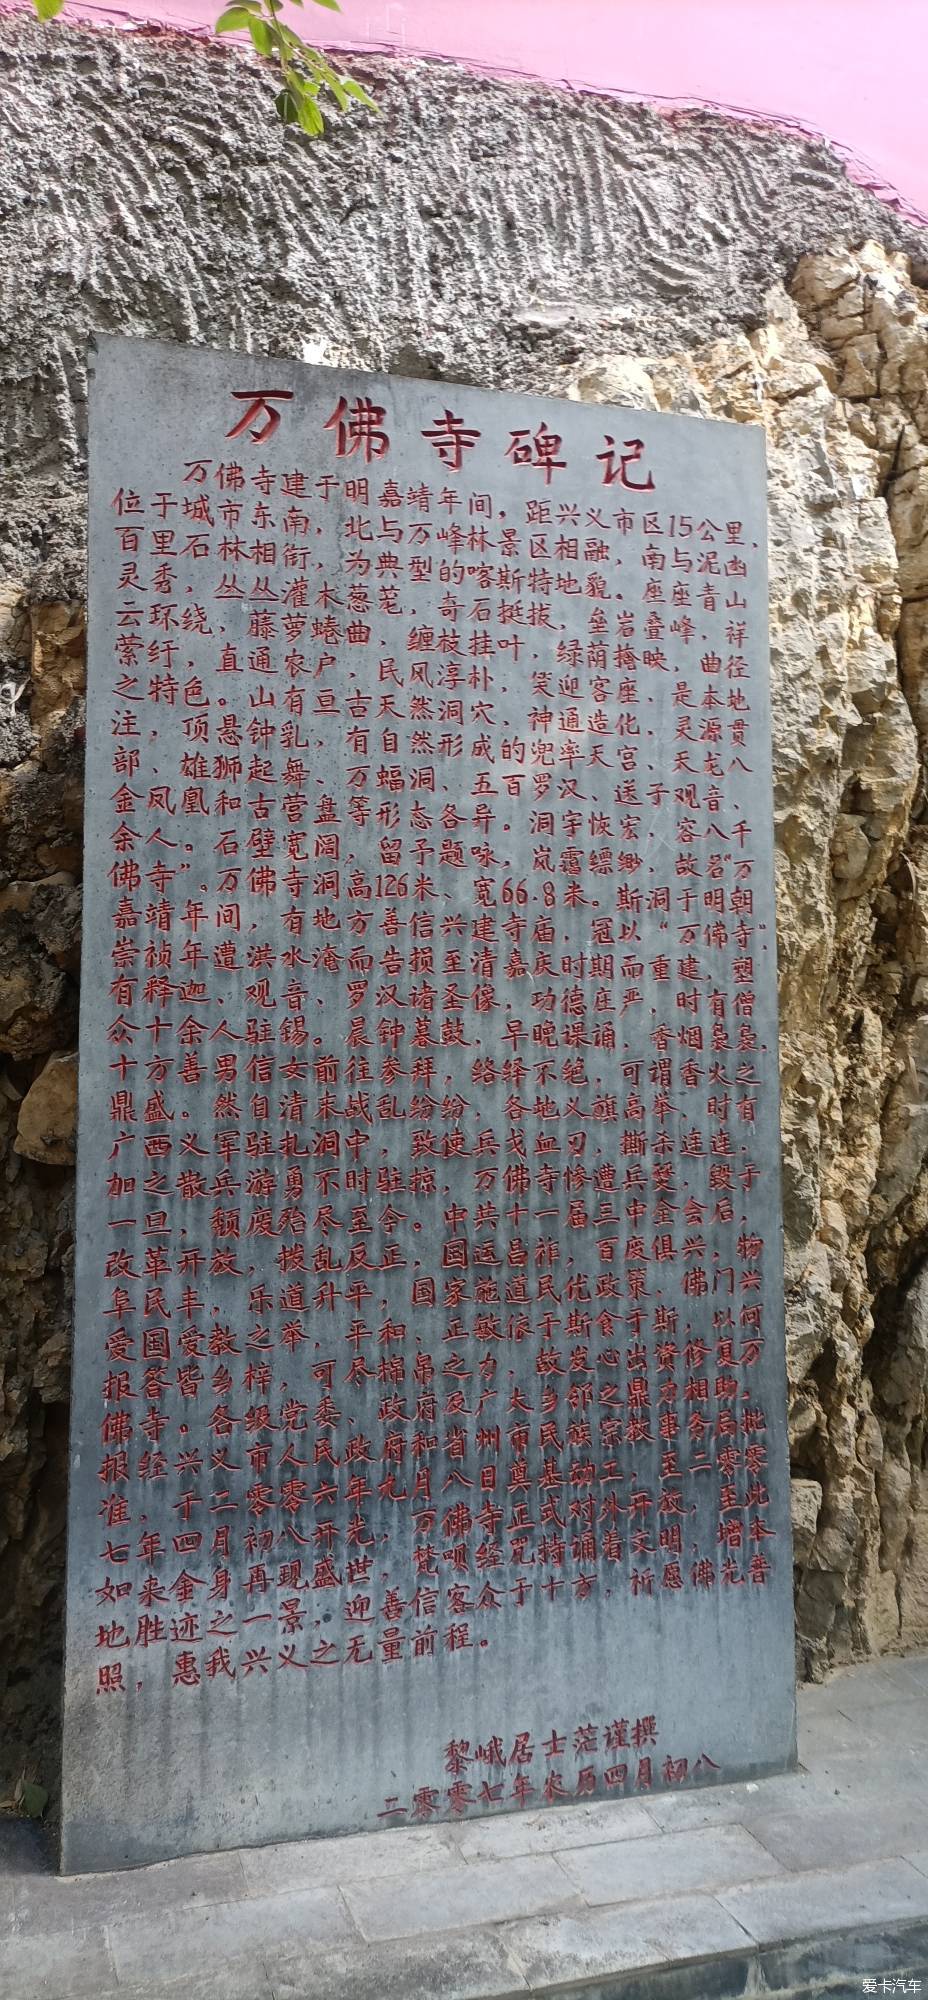 万佛寺碑记
万佛寺建于明嘉靖年间，距兴义市区15公里，
位于城市东南，北与万峰林景区相融，南与泥凼
百里石林相衔，为典型的喀斯特地貌。座座青山
灵秀，丛丛灌木葱茏，奇石挺拔，垒岩叠峰，祥
云环绕，藤萝蜷曲，缠枝挂叶，绿荫掩映，曲径
萦纡，直通农户，民风淳朴，笑迎客座，是本地
之特色。山有亘古天然洞穴，神通造化，灵源贯
注，顶悬钟乳，有自然形成的兜率天宫、天龙八
部、雄狮起舞、万蝠洞、五百罗汉、送子观音、
金凤凰和古营盘等形态各异。洞宇恢宏，容八千
余人。石壁宽阔，留予题咏，岚霭缥缈，故名“万
佛寺”。万佛寺洞高126米、宽66.8米。斯洞于明朝
嘉靖年间，有地方善信兴建寺庙，冠以“万佛寺”，
崇祯年遭洪水淹而告损至清嘉庆时期而重建，塑
有释迦、观音、罗汉诸圣像，功德庄严，时有僧
众十余人驻锡。晨钟暮鼓，早晚课诵，香烟袅袅，
十方善男信女前往参拜，络绎不绝，可谓香火之
鼎盛。然自清末战乱纷纷，各地义旗高举，时有
广西义军驻扎洞中，致使兵戈血刃，撕杀连连，
加之散兵游勇不时驻掠，万佛寺惨遭兵燹，毁于
一旦，颓废殆尽至今。中共十一届三中全会后，
改革开放，拨乱反正，国运昌祚，百度俱兴，物
阜民丰，乐道升平，国家施民优政策，佛门兴
爱国爱教之举，平和、正敏道依于斯食于斯，以何
报答皆乡梓，可尽棉帛之力，故发心出资修复万
佛寺。各级党委、政府及广大乡邻之鼎力相助，
报经兴义市人民政府和省州市民族宗教事务局批
准，于二零零六年九月八日奠基动工，至二零零
七年四月初八开光，万佛寺正式对外开放，至此
如来金身再现盛世，梵呗经咒持诵着文明，增本
地胜迹之一景，迎善信客众于十方，祈愿佛光普
照，惠我兴义之无量前程。
黎峨居士茫谨撰
二零零七年农历四月初八
爱卡汽车